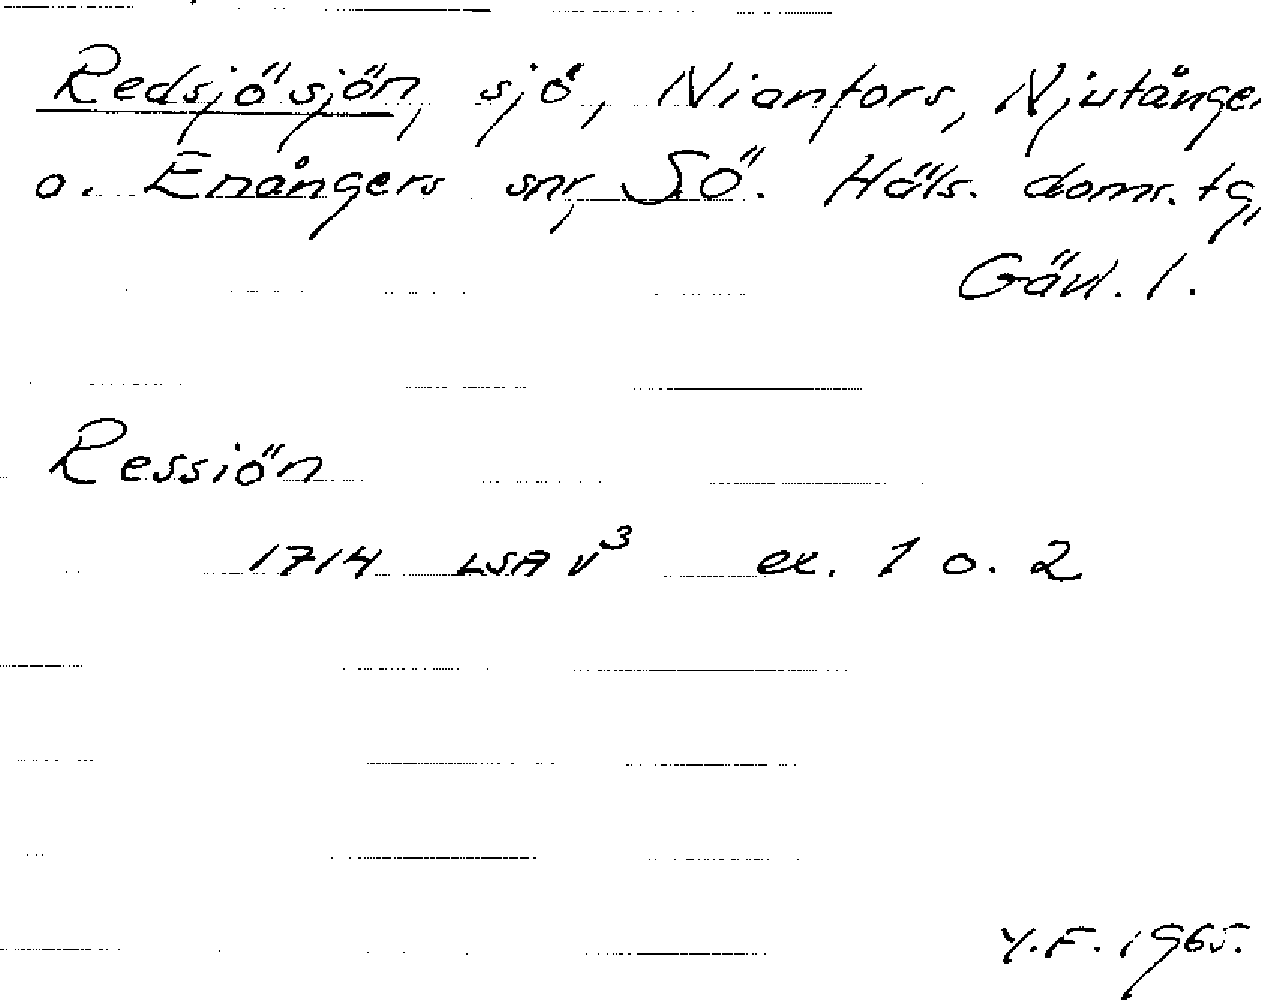 Redsjösjön, sjö, Nianfors, Njutånge
o. Enångers snr, SÖ. Häls. doms. tg,
Gävl. l.
Ressiön
1714 LSA V³ ex. 1 o. 2
Y.F. 1965.